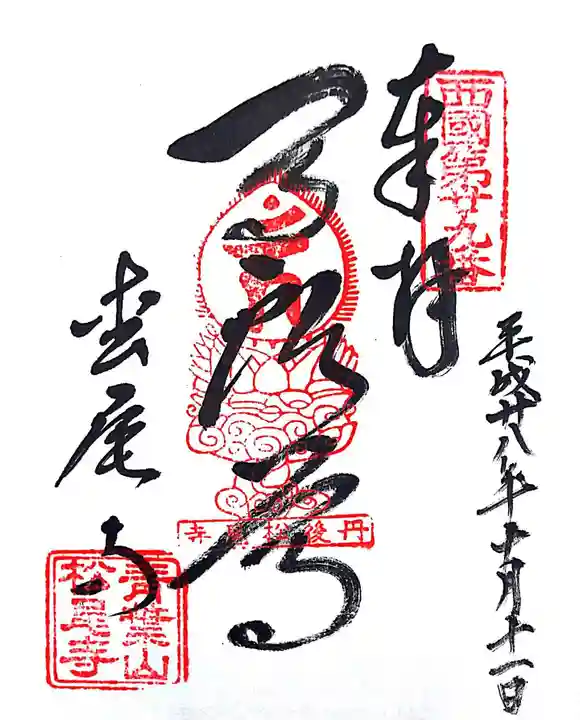 西國第廿九番
奉拝
平成廿八年十月十一日
馬頭尊
丹後松尾寺
松尾寺
青葉山
松尾寺